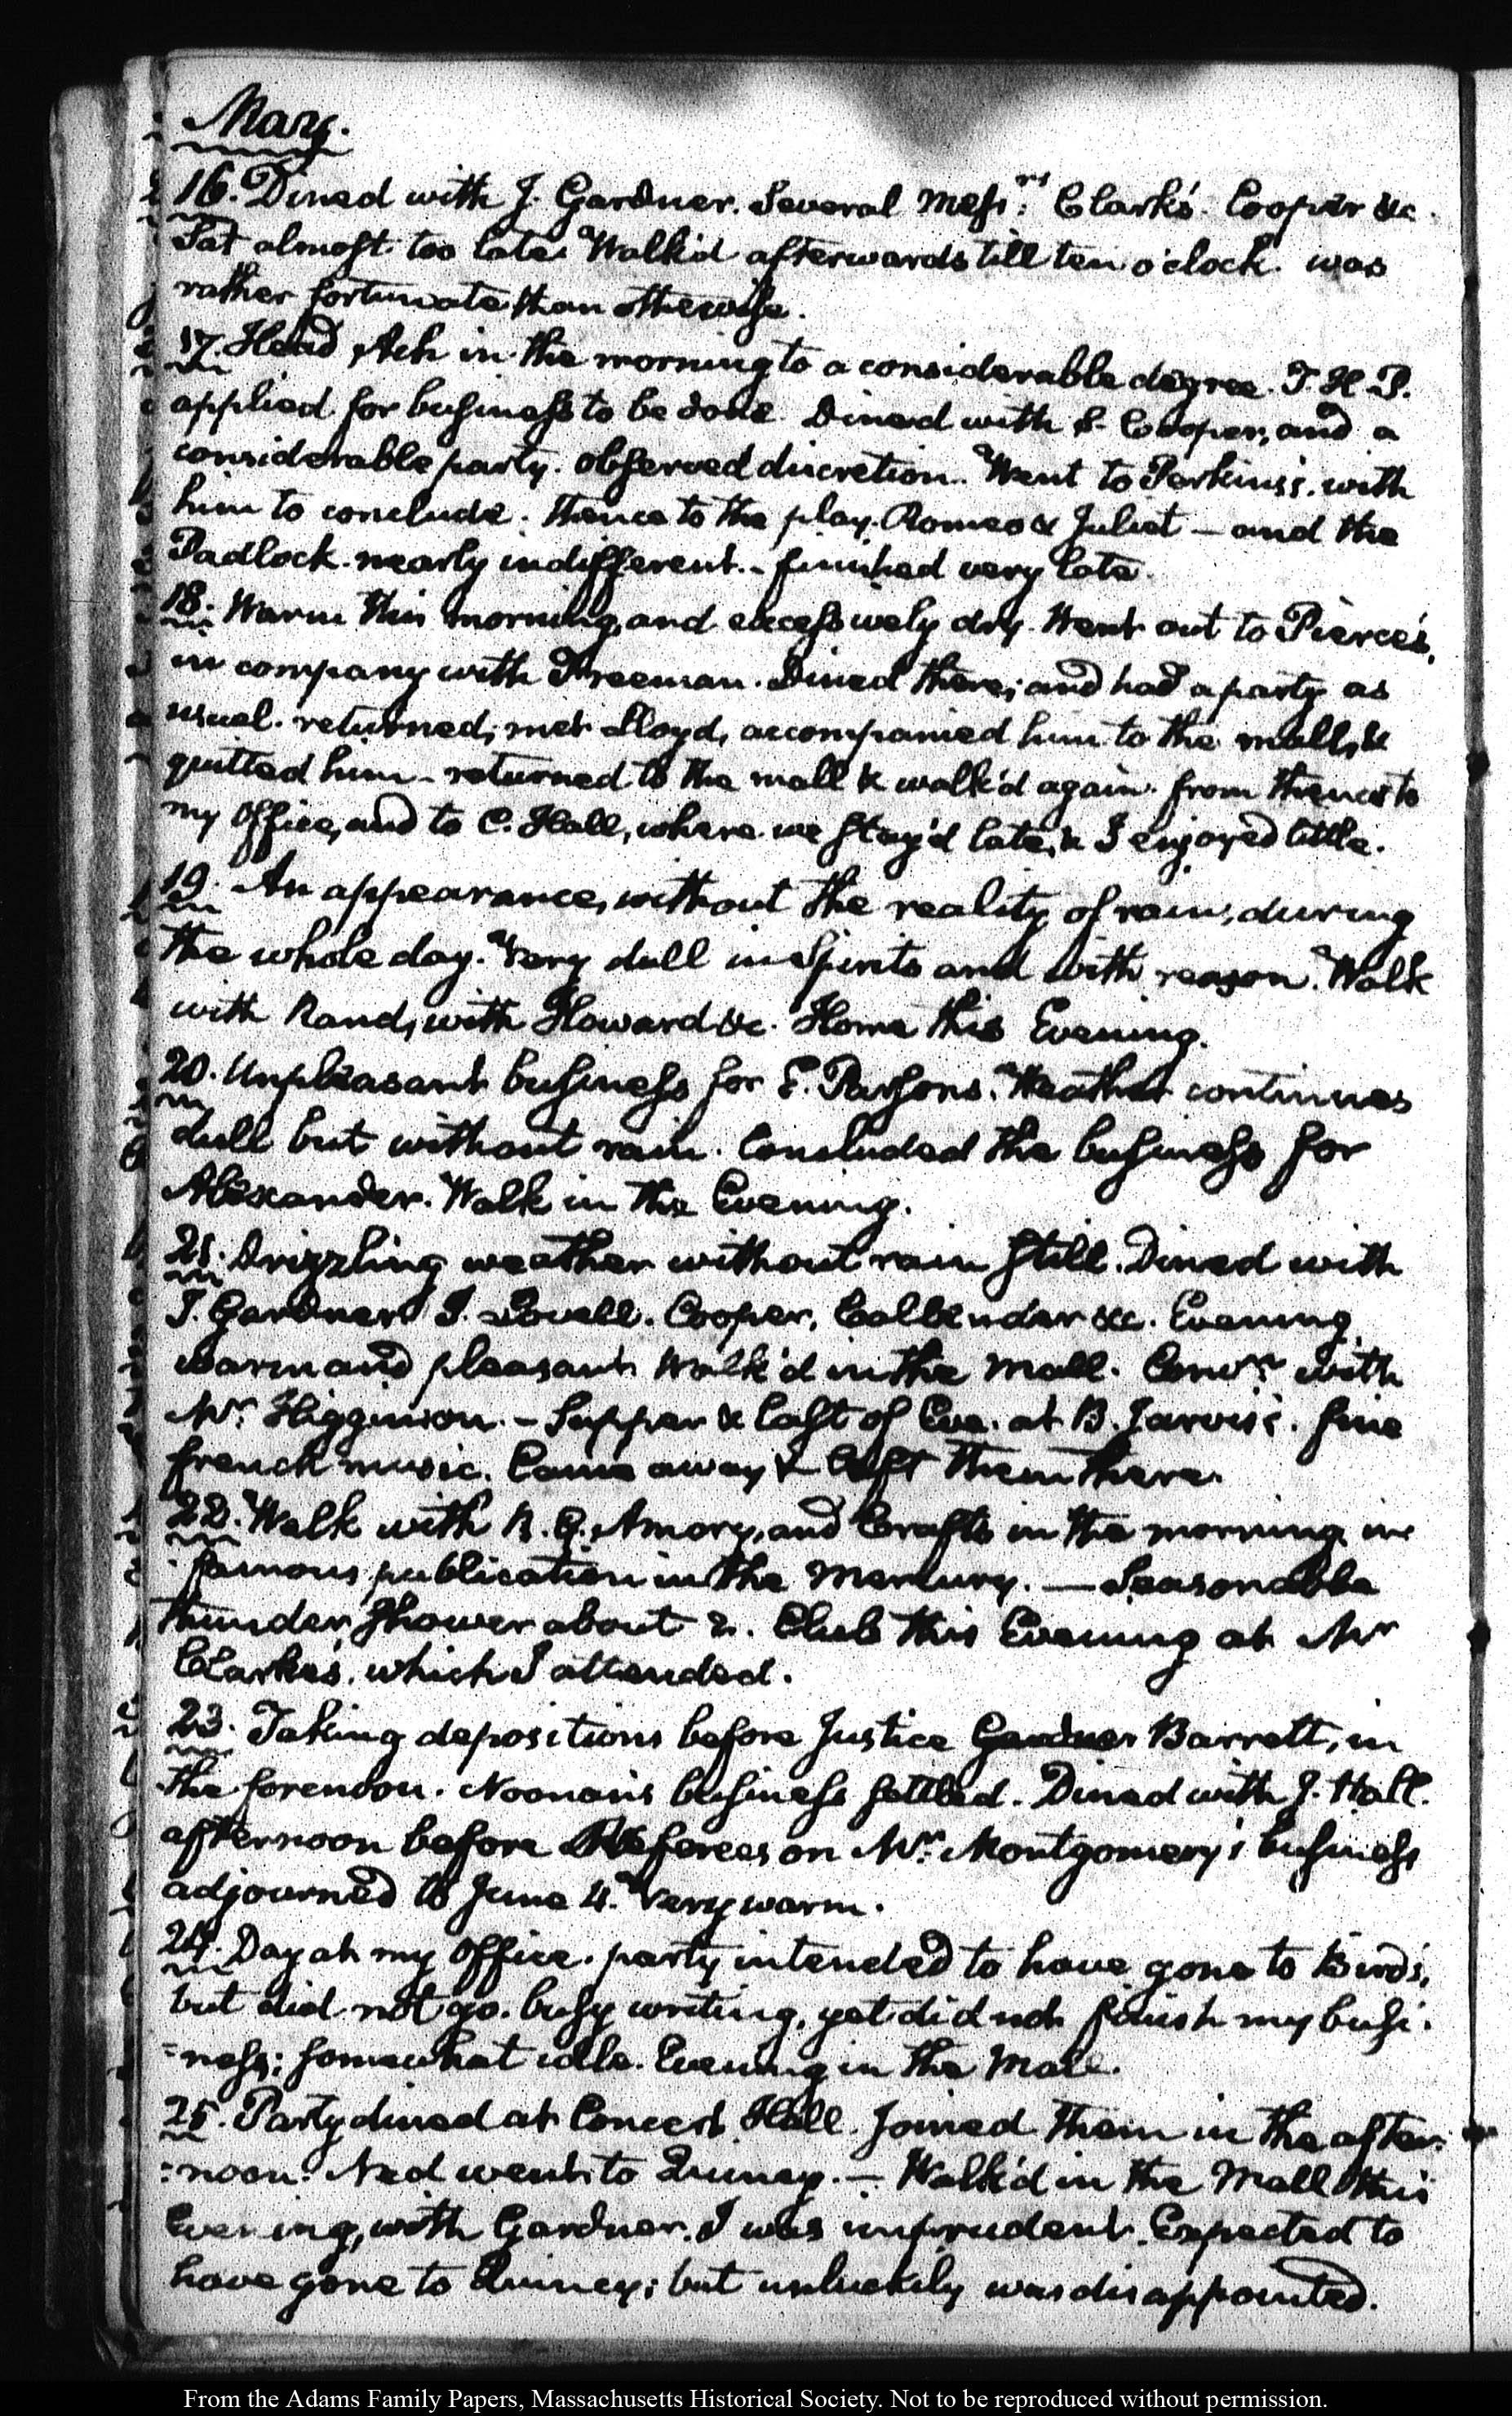 May.
16. Dined with J. Gardner. Several Messrs: Clark's. Cooper &c.
Sat almost too late. Walk'd afterwards till ten o'clock. was
rather fortunate than otherwise.
17. Head Ach in the morning to a considerable degree. T. H. P.
applied for business to be done. Dined with S. Cooper, and a
considerable party. observed discretion. Went to Perkins's. with
him to conclude. thence to the play. Romeo & Juliet — and the
Padlock. nearly indifferent. - finished very late.
18. Warm this morning, and excessively dry. Went out to Pierce's,
in company with Freeman. Dined there; and had a party as
usual. returned; met Lloyd, accompanied him to the mall, &
quitted him - returned to the mall & walk'd again. from thence to
my Office, and to C. Hall, where we stay'd late, & I enjoyed little.
19. An appearance, without the reality of rain, during
the whole day. Very dull in Spirits and with reason. Walk
with Rand, with Howard &c. Home this Evening.
20. Unpleasant business for E. Parsons. Weather continues
dull but without rain. Concluded the business for
Alexander. Walk in the Evening.
21. Drizzling weather without rain still. Dined with
J. Gardner J. Lowell. Cooper, Callender &c. Evening
warm and pleasant. Walk'd in the Mall. Convn: with
Mr: Higginson. - Supper & last of Eve. at B. Jarvis's. fine
french music. Came away & left them there.
22. Walk with R. G. Amory, and Crafts in the morning. in
famous publication in the Mercury. — Seasonable
thunder shower about 2. Club this Evening at Mr
Clarke's, which I attended.
23. Taking depositions before Justice Gardner Barrett, in
the forenoon. Noonan's business settled. Dined with J. Hall.
afternoon before Referees on Mr: Montgomery's business
adjourned to June 4. Very warm.
24. Day at my Office. party intended to have gone to Bird's,
but did not go. busy writing, yet did not finish my busi-
=ness; somewhat idle. Evening in the Mall.
25. Party dined at Concert Hall. Joined them in the after-
=noon. Ned went to Quincy. — Walk'd in the Mall this
Evening, with Gardner. I was imprudent. Expected to
have gone to Quincy; but unluckily was disappointed.
From the Adams Family Papers, Massachusetts Historical Society. Not to be reproduced without permission.